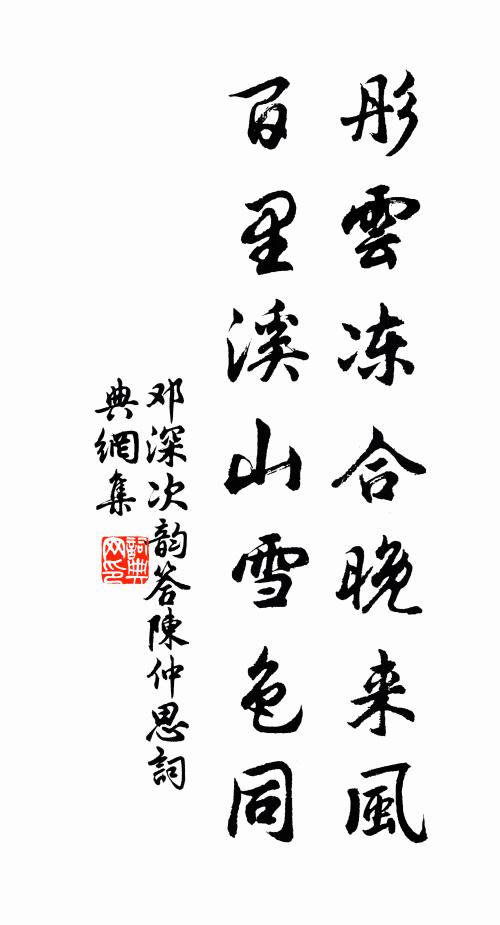 彤雲冻合晚来風
百里溪山雪色同
邓深次韵答陳仲思詞
典網集
詞典网印